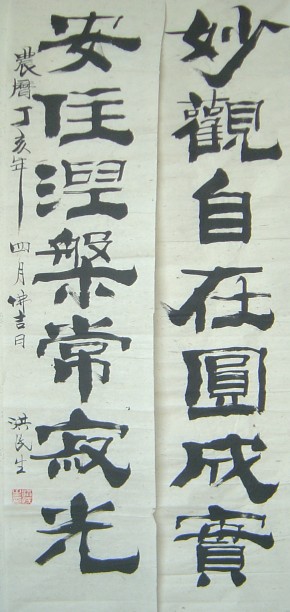 妙觀自在圓成實
安住涅槃常寂光
農曆丁亥年 四月佛吉日 洪民生